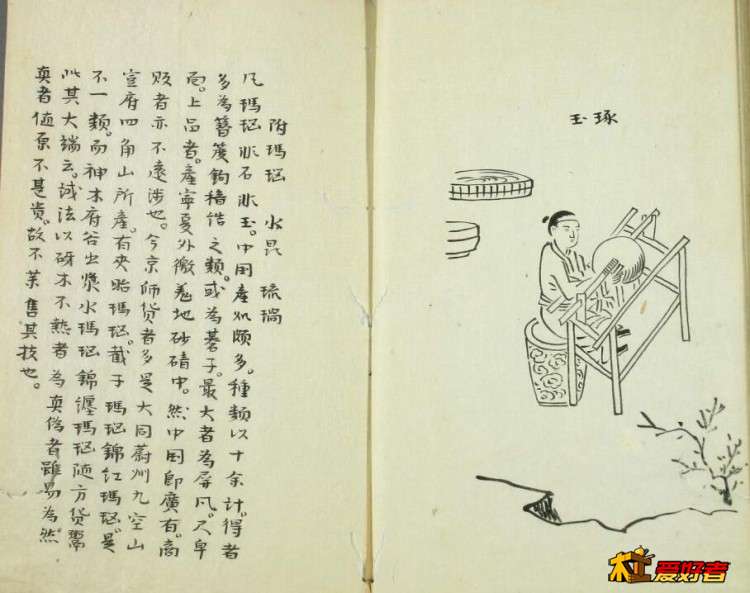 琢玉
附瑪瑙 水昆 琉璃
凡瑪瑙非石非玉。中国產処頗多。種類以十余計。得者
多為簪篋鈎之類。或為碁子。最大者為屏风。及卓
面。上品者。產寧夏外徼羌地砂磧中。然中国即廣有。商
贩者亦不遠涉也。今京師货者多是大同蔚州九空山
宣府四角山所產。有夾胎瑪瑙。截子瑪瑙錦红瑪瑙。是
不一類。而神木府谷出漿水瑪瑙錦纏瑪瑙随方货鬻
此其大端云。試法以砑木不熱者為真偽者雖易為。然
真者值原不甚贵。故不業售其技也。
木工爱好者